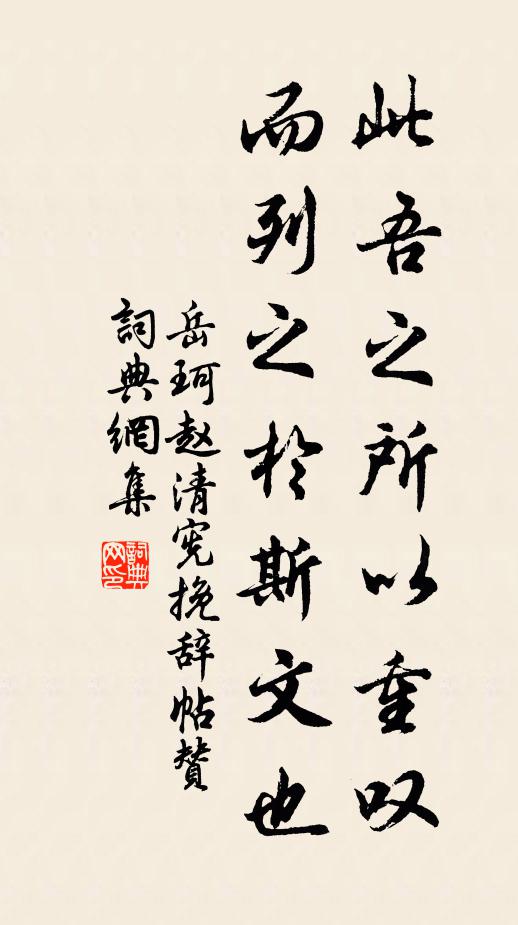 此吾之所以重叹
而列之於斯文也
岳珂赵清宪挽辞帖赞
詞典網集
詞典
网印